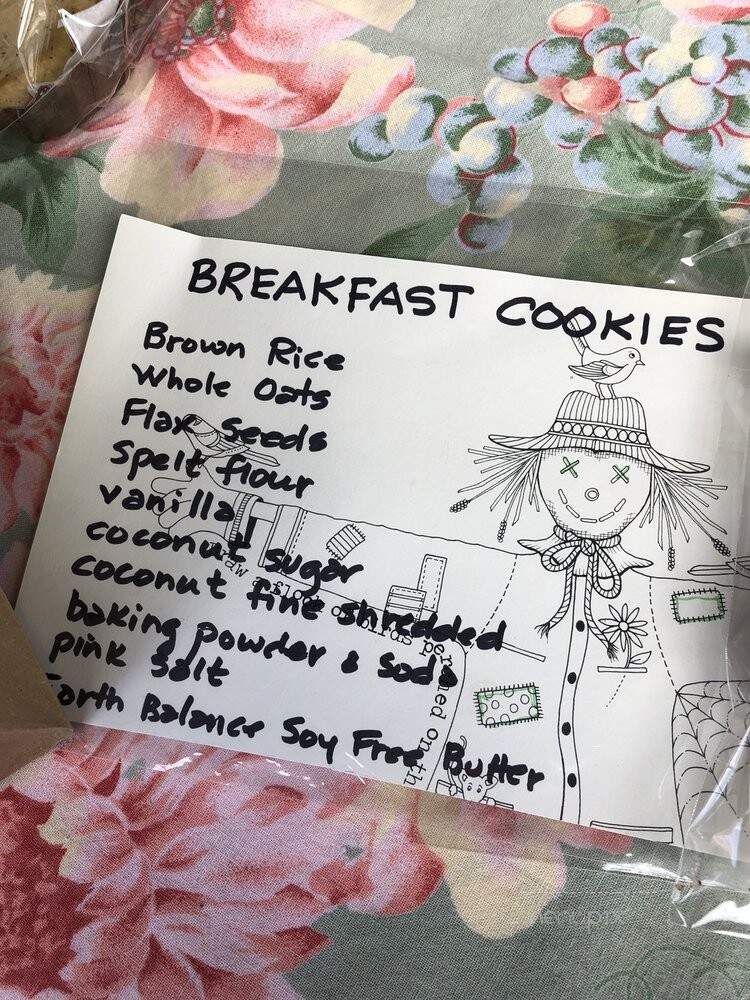 BREAKFAST COOKIES
Brown Rice
Whole Oats
Flax Seeds
Spelt flour
vanilla
coconut sugar
coconut fine shredded
baking powder & soda
pink salt
Earth Balance Soy Free Butter
menupix